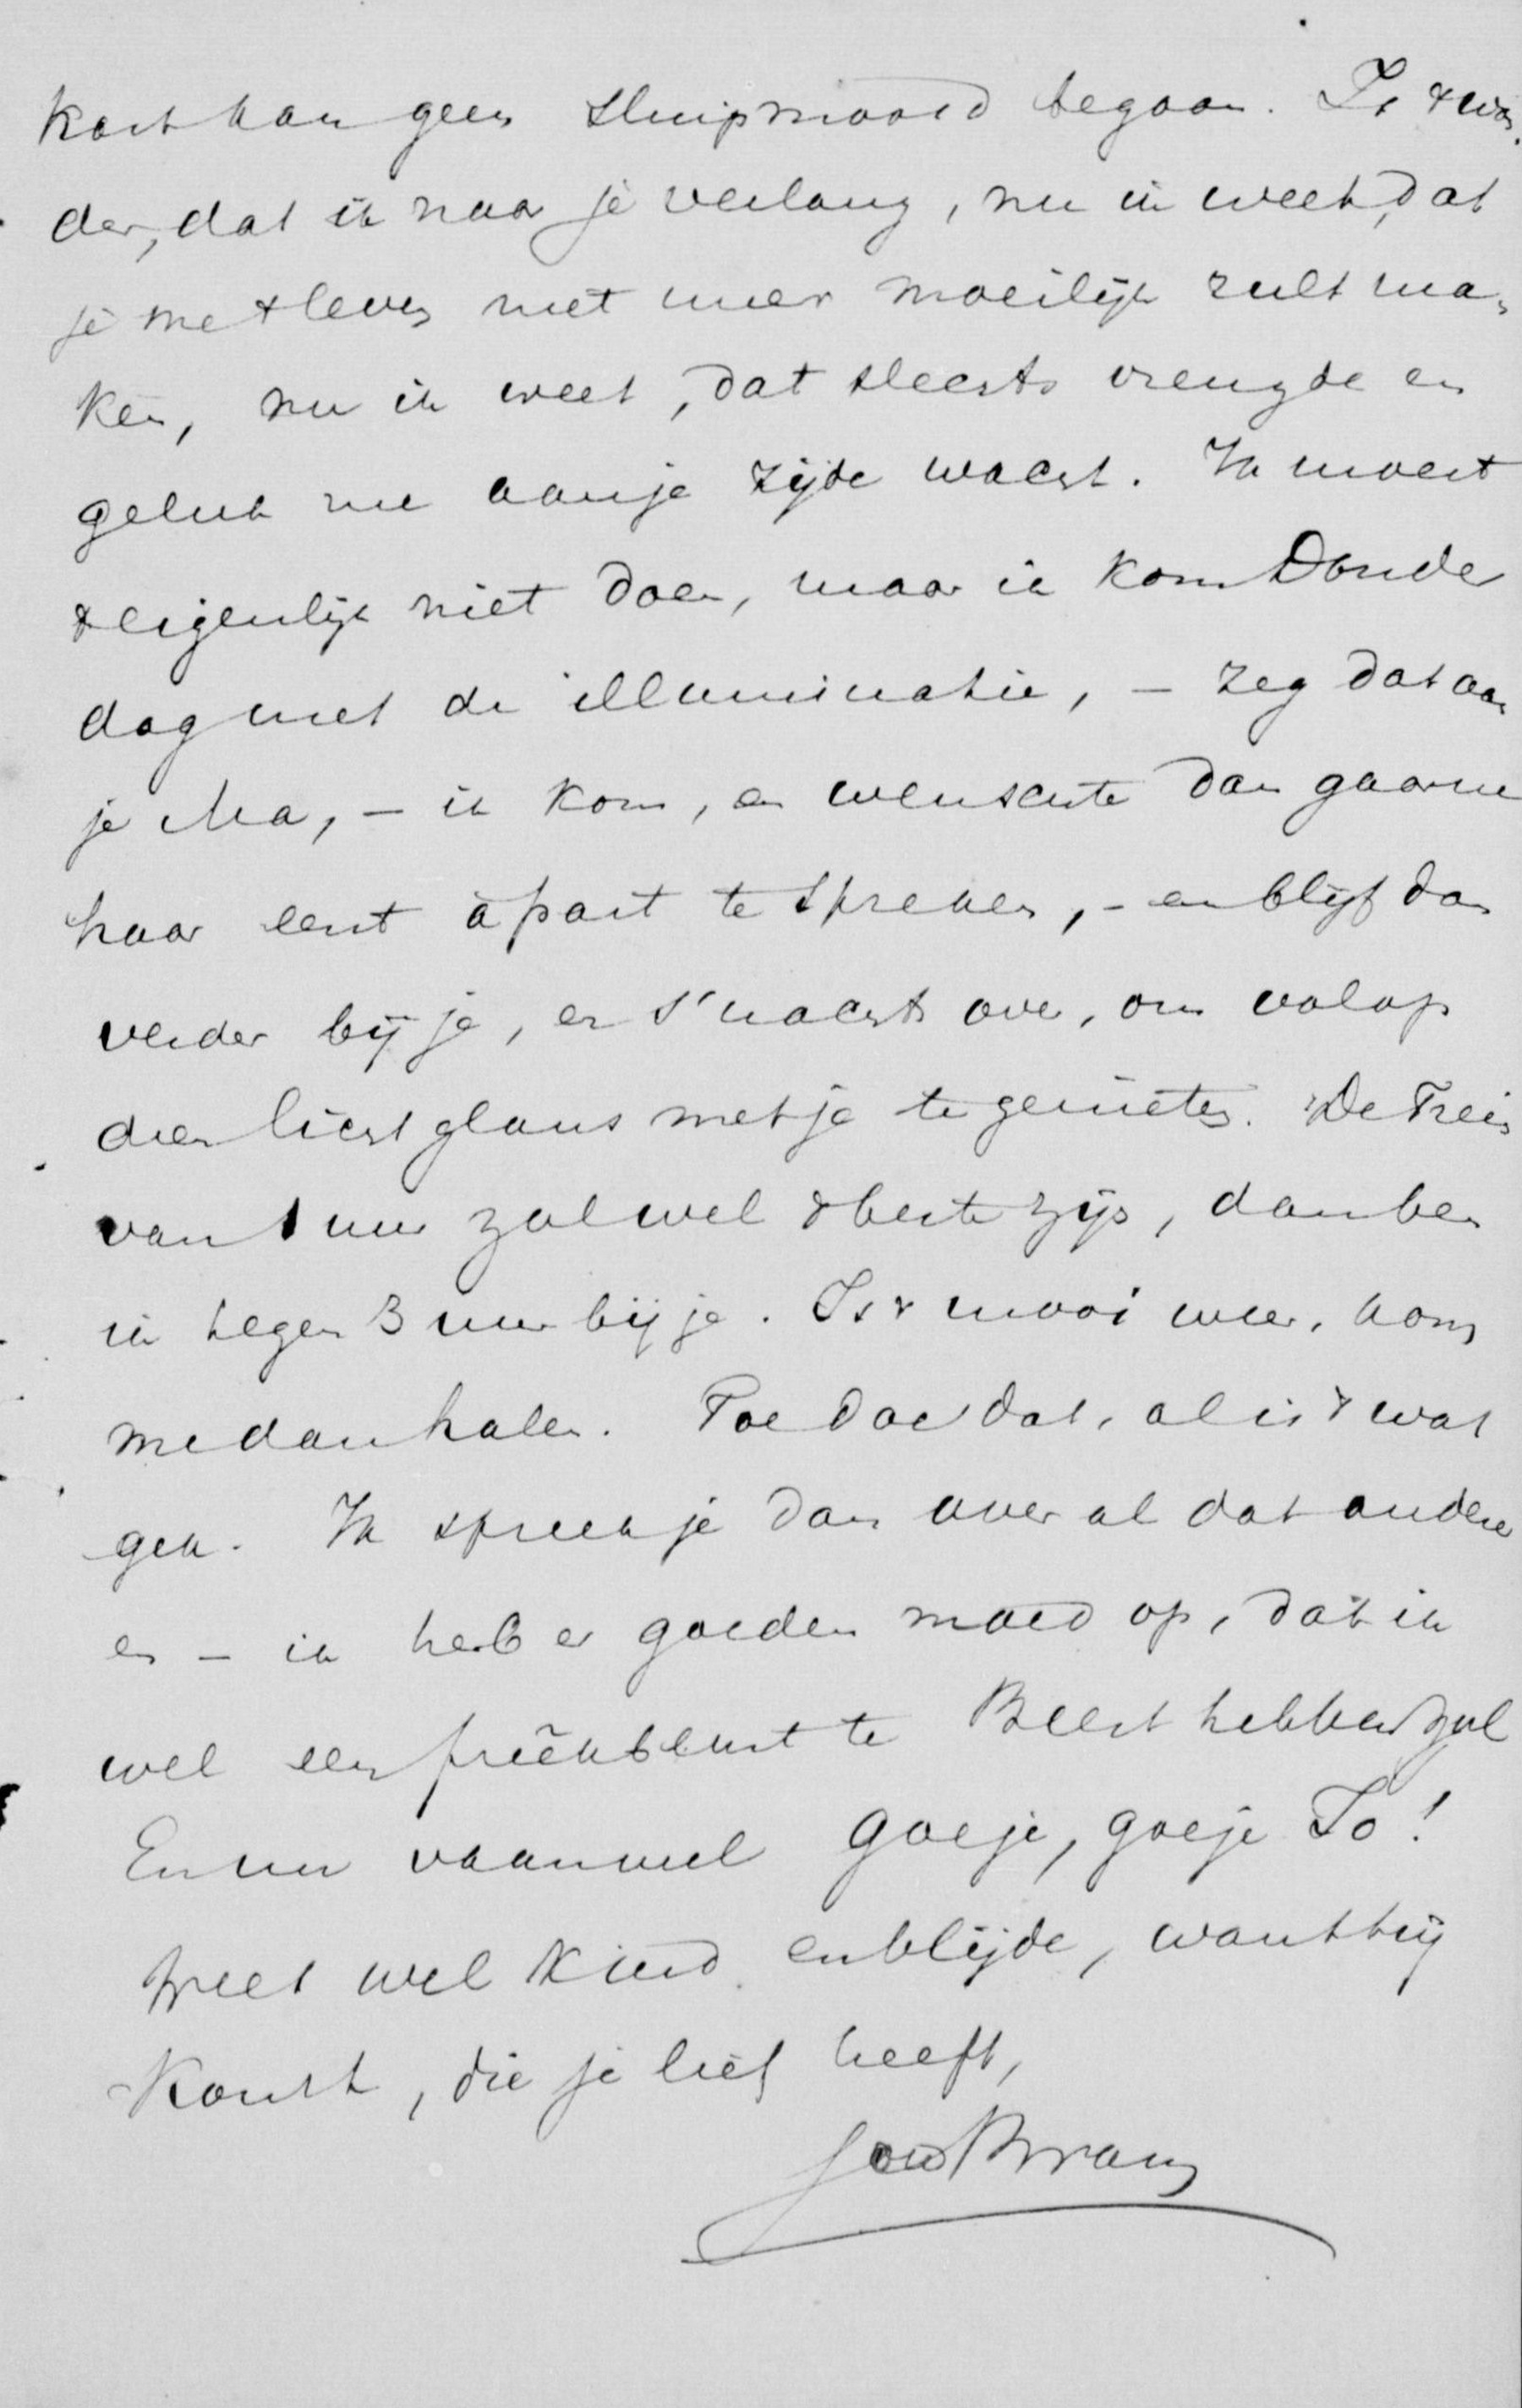 kort kan geen sluipmoord begaan. Is 't won-
der, dat ik naar je verlang, nu ik weet, dat
je me 't leven niet meer moeilijk zult ma-
ken, nu ik weet, dat slechts vreugde en
geluk me aan je zijde wacht. Ik moest
't eigenlijk niet doen, maar ik kom Donder
dag met de illuminatie, – zeg dat aan
je Ma, – ik kom, en wenschte dan gaarne
haar eerst apart te spreken, – en blijf dan
verder bij je, en s'nachts over, om volop
den lichtglans met je te genieten. De trein
van 1 uur zal wel 't beste zijn, dan ben
ik tegen 3 uur bij je. Is 't mooi weer, kom
me dan halen. Toe doe dat, al is 't wat
gek. Ik spreek je dan over al dat andere
en – ik heb er goeden moed op, dat ik
wel een preekbeurt te Beest hebben zal
En nu vaarwel goeje, goeje To!
Weest wel kind en blijde, want hij
Komt, die je lief heeft,
Jouw Bram